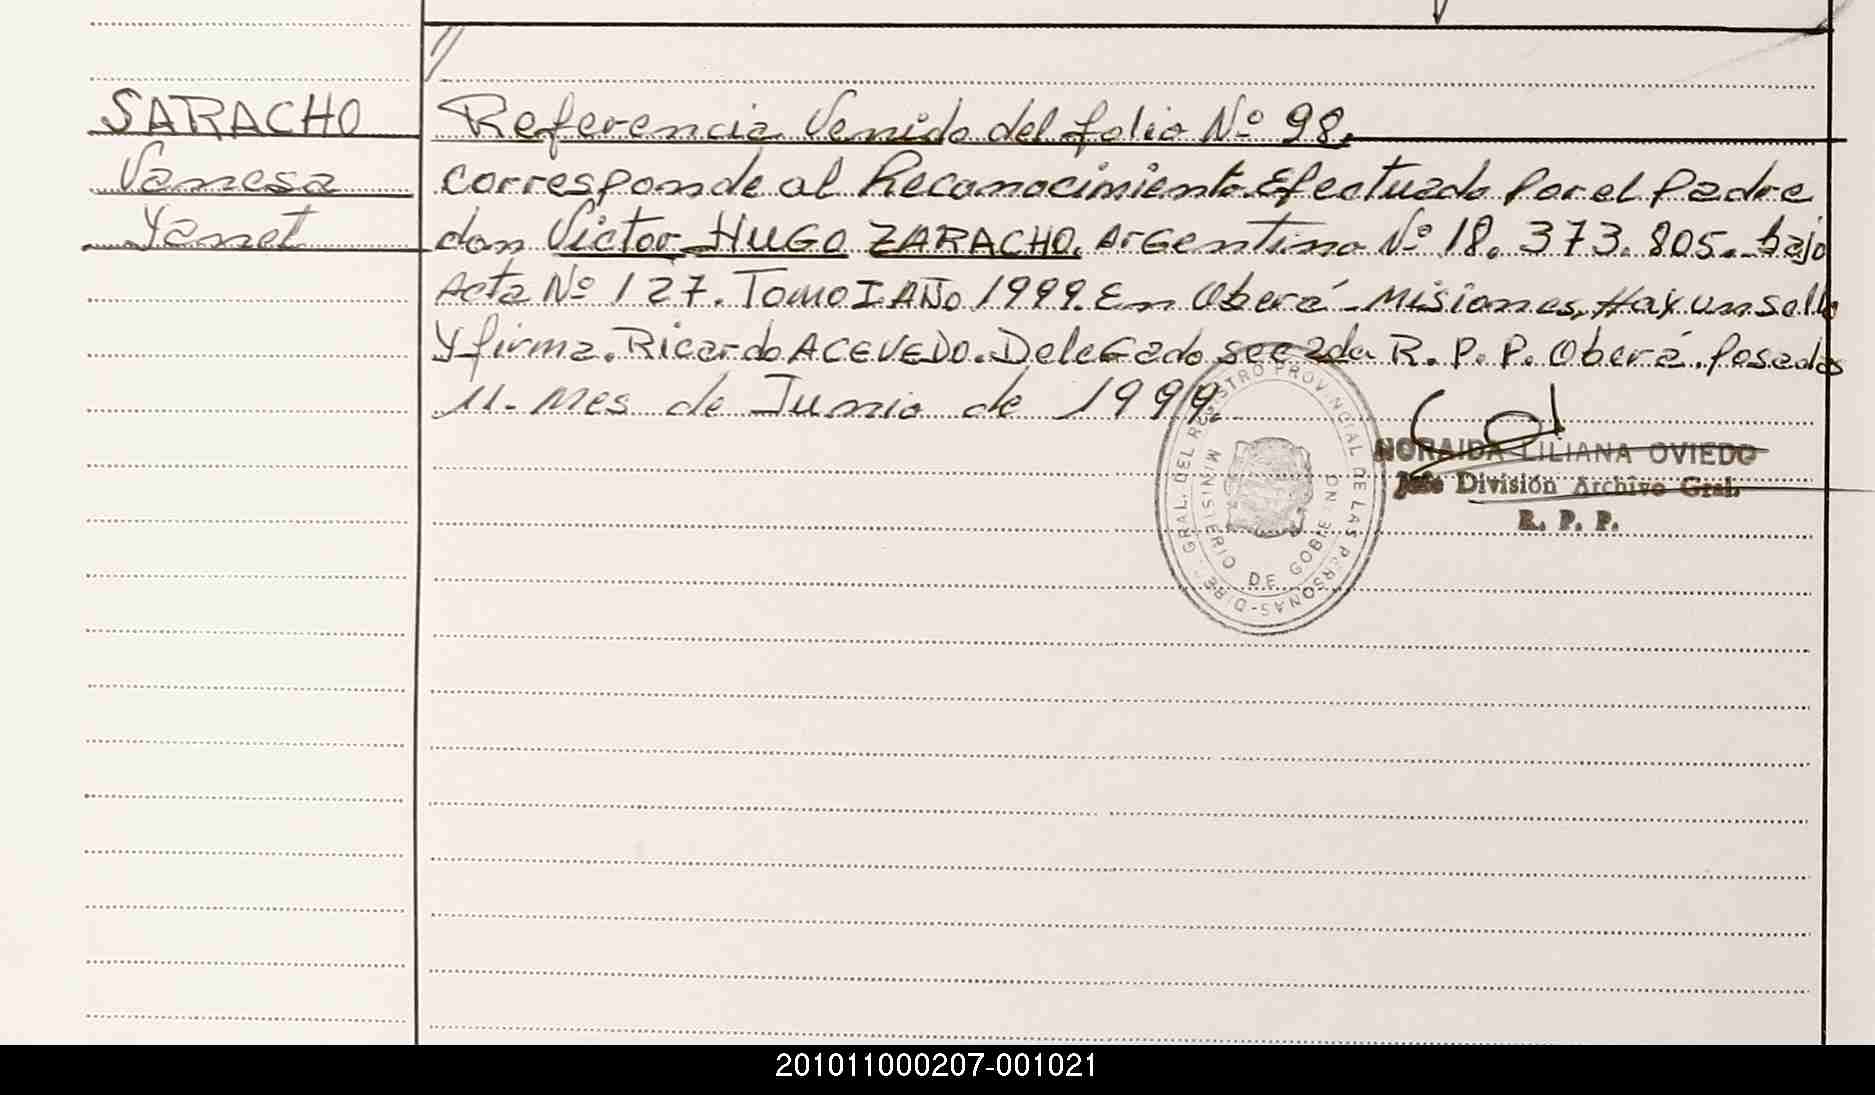 SARACHO
Vanesa
Yanet
Referencia Venida del folio Nº 98.
corresponde al Reconocimiento Efectuado Por el Padre
don Victor HUGO ZARACHO, ArGentino Nº 18.373.805. bajo
Acta Nº 127. Tomo I AÑo 1999. En Oberá - Misiones, Hay un sello
y firma. Ricardo ACEVEDO. DeleGado R. P. P. Oberá. Posadas
11. Mes de Junio de 1999.
DIRE. GRAL. DEL REGISTRO PROVINCIAL DE LAS PERSONAS
MINISTERIO DE GOBIERNO
NORAIDA LILIANA OVIEDO
Jefe División Archivo Gral.
R. P. P.
201011000207-001021